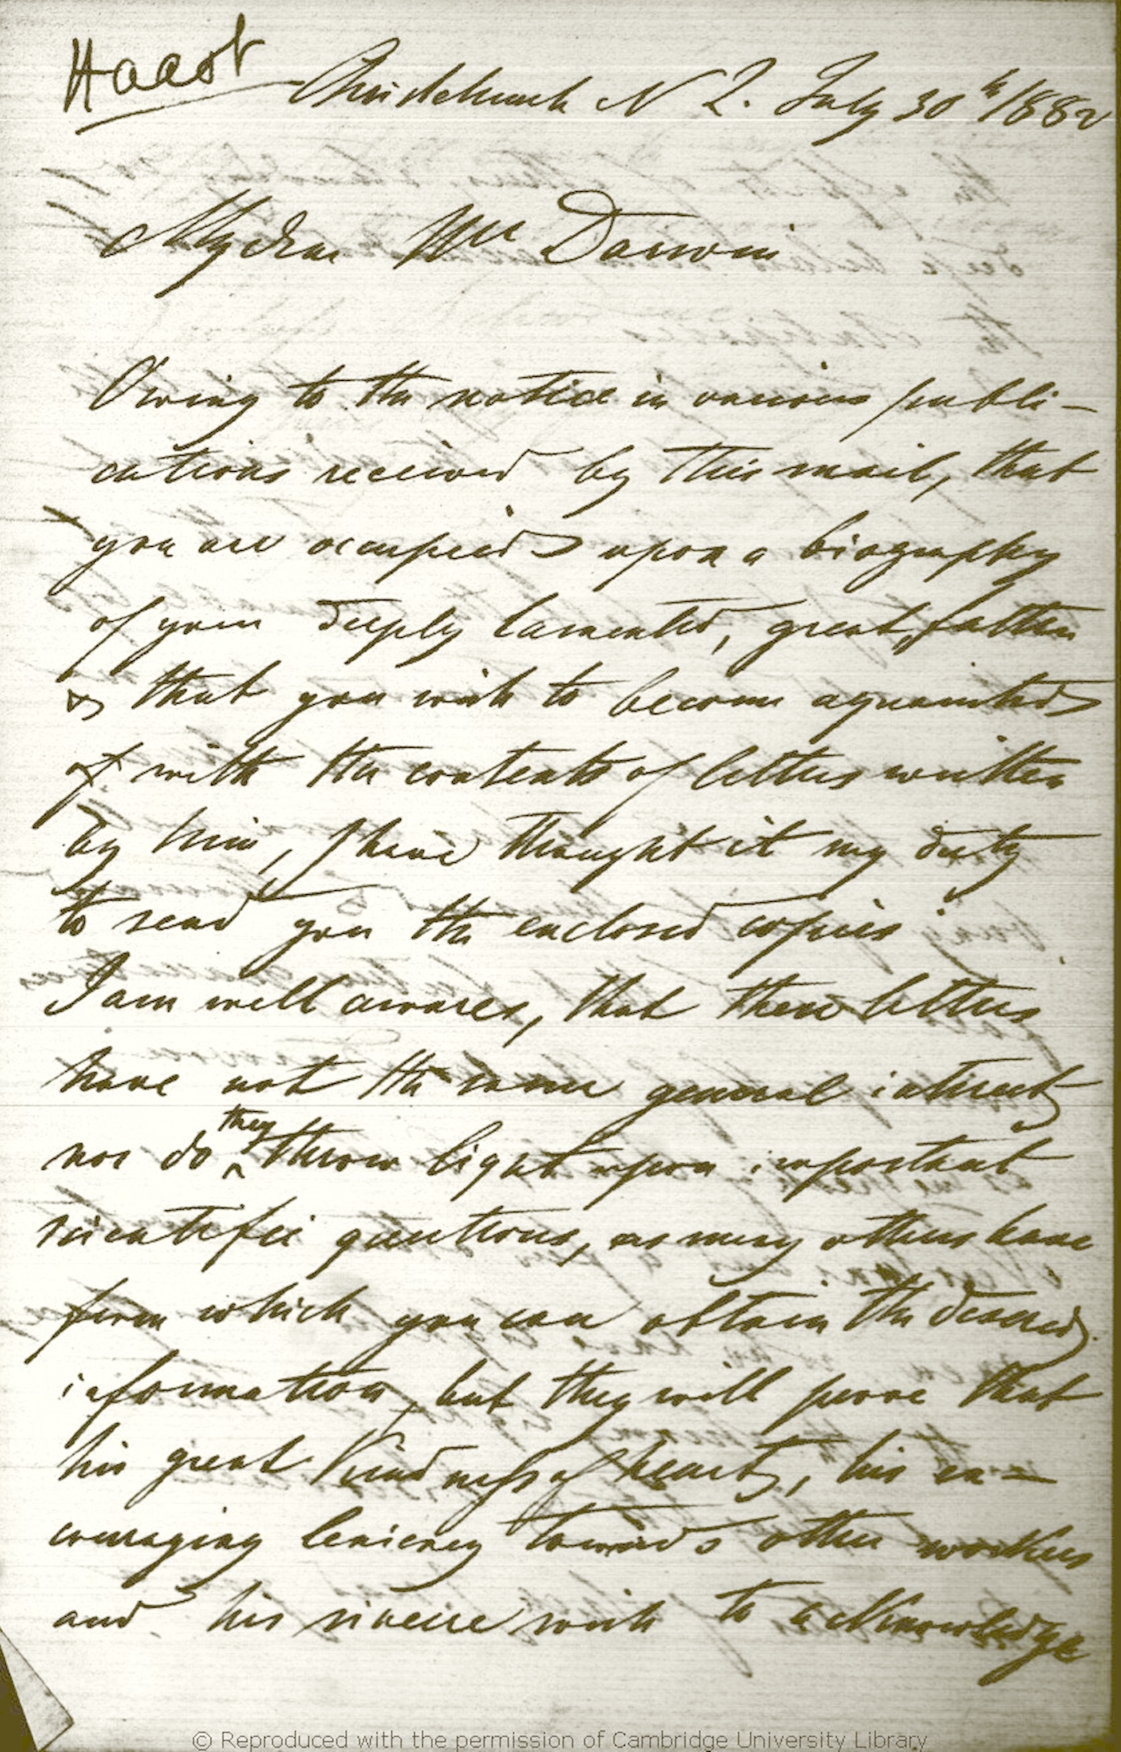 Haast
Christchurch N Z. July 30th 1882
My dear Mr Darwin
Owing to the notice in various publi-
cations received by this mail, that
you are occupied upon a biography
of your deeply lamented, great father
& that you wish to become aquainted
with the contents of letters written
by him, I have thought it my duty
to send you the enclosed copies.
I am well aware, that these letters
have not the same general interest,
nor do they throw light upon important
scientific questions, as many others have
from which you can obtain the desired
information, but they will prove that
his great kindness of heart, his en=
couraging leniency towards other workers
and his sincere wish to acknowledge
© Reproduced with the permission of Cambridge University Library